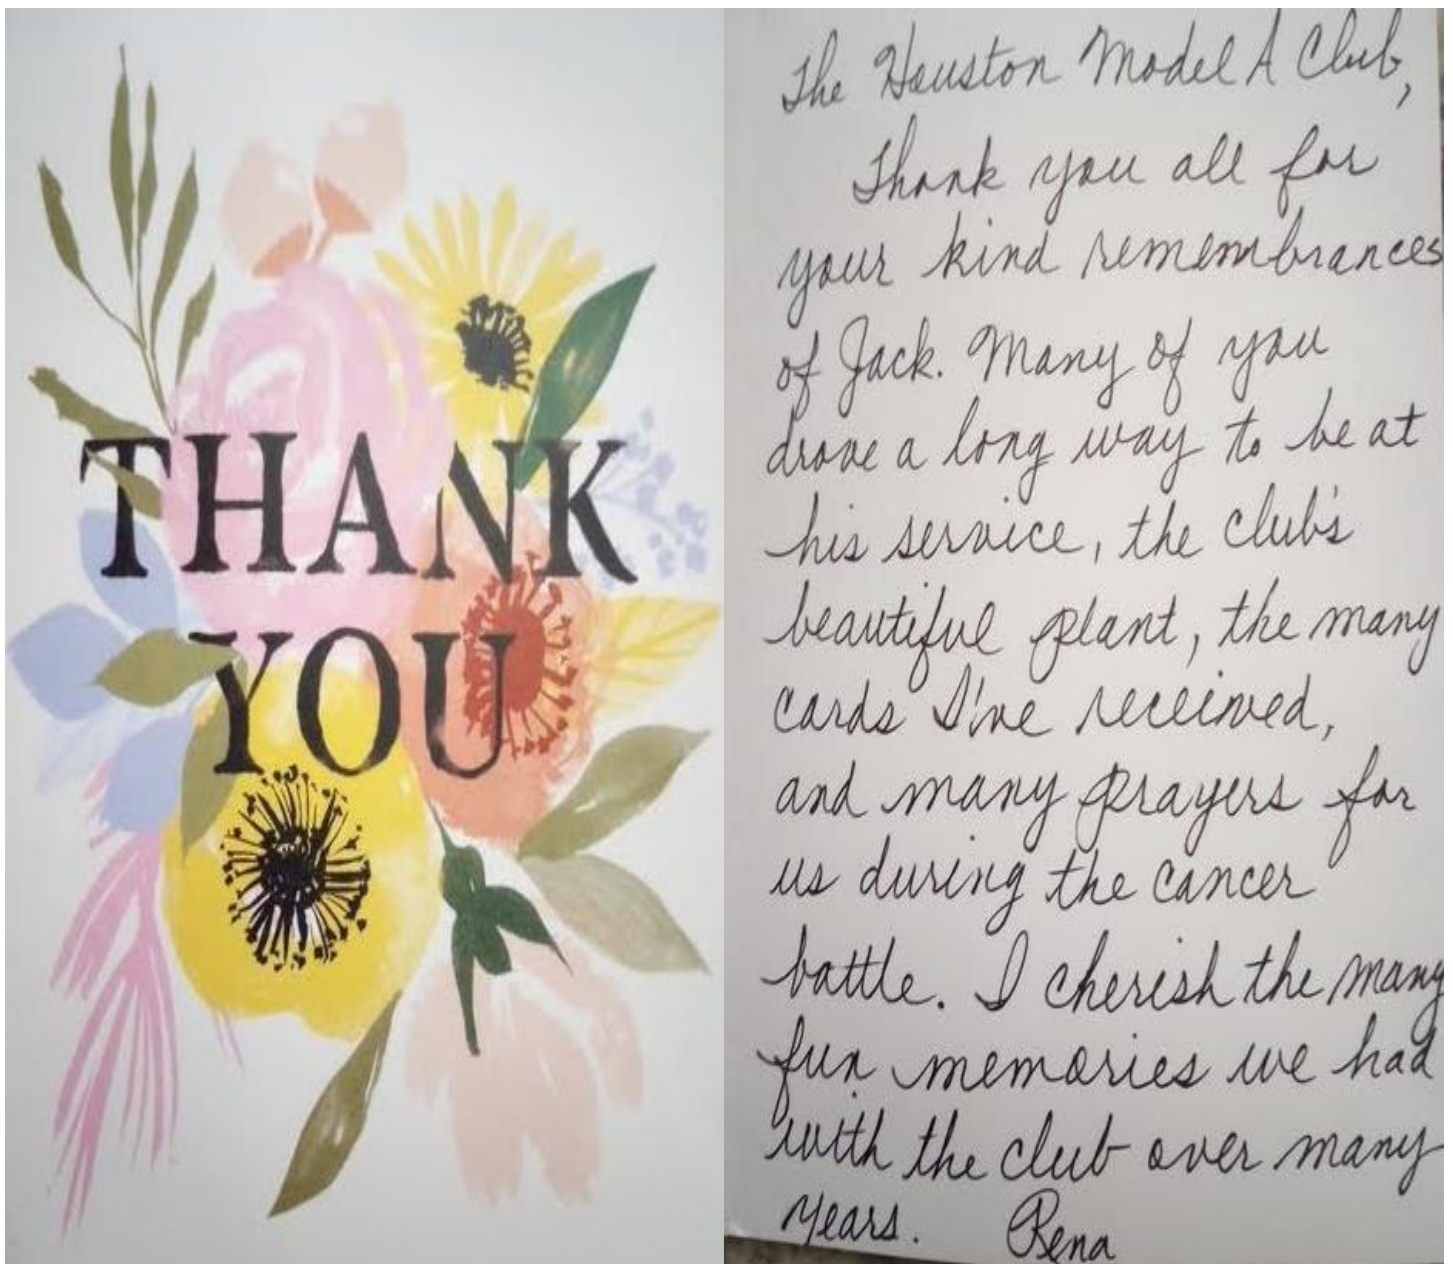 THANK
YOU
The Houston Model A Club,
Thank you all for
your kind remembrances
of Jack. Many of you
drove a long way to be at
his service, the club's
beautiful plant, the many
cards I've received,
and many prayers for
us during the cancer
battle. I cherish the many
fun memories we had
with the club over many
years. Rena